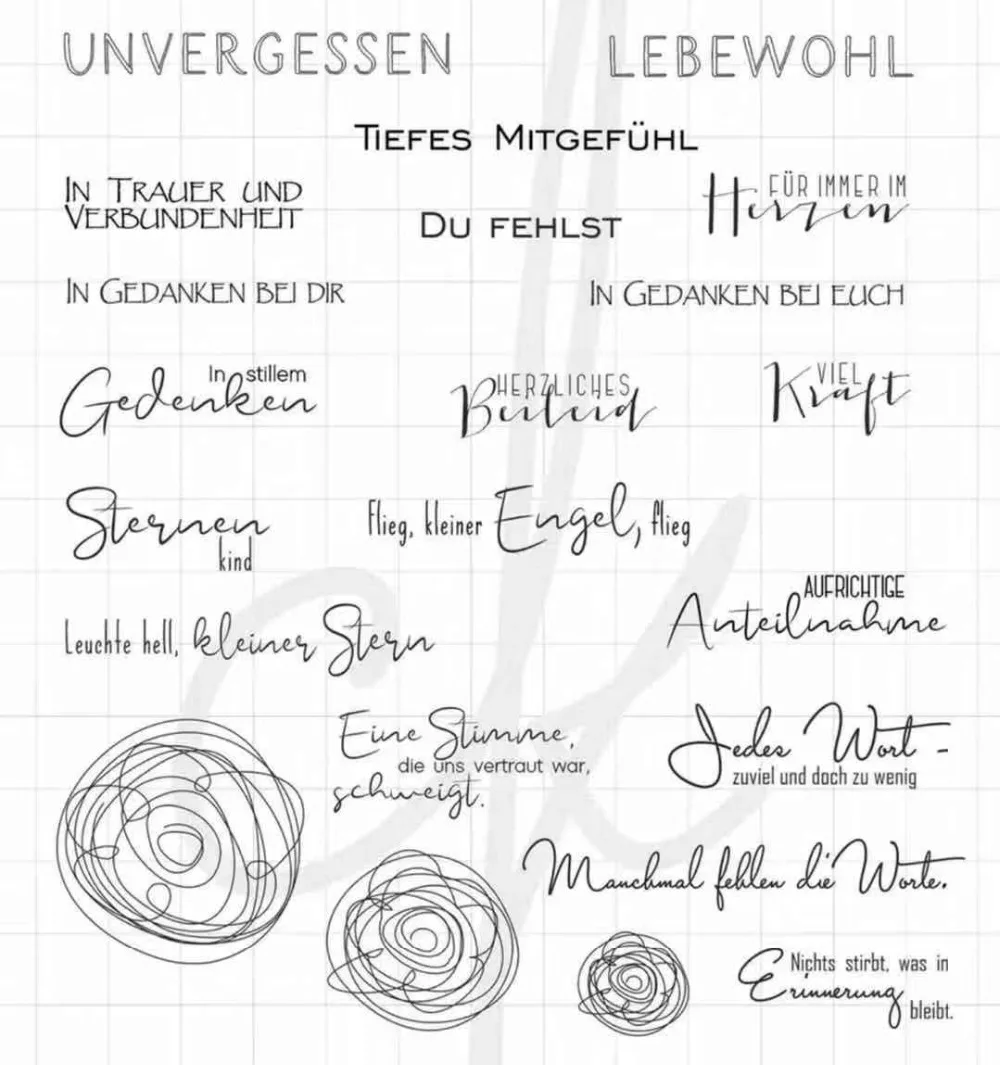 UNVERGESSEN
LEBEWOHL
TIEFES MITGEFÜHL
IN TRAUER UND
VERBUNDENHEIT
FÜR IMMER IM
Herzen
DU FEHLST
IN GEDANKEN BEI DIR
IN GEDANKEN BEI EUCH
In stillem
Gedenken
HERZLICHES
Beileid
VIEL
Kraft
Sternen
kind
Flieg, kleiner Engel, flieg
AUFRICHTIGE
Anteilnahme
Leuchte hell, kleiner Stern
Eine Stimme,
die uns vertraut war,
schweigt.
Jedes Wort -
zuviel und doch zu wenig
Manchmal fehlen die Worte.
Nichts stirbt, was in
Erinnerung
bleibt.
ck